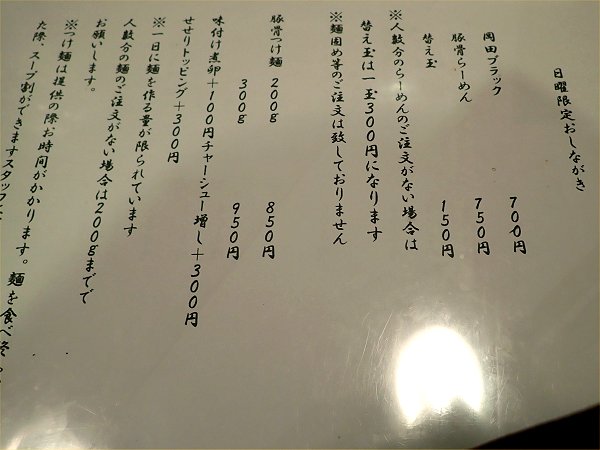 日曜限定おしながき
岡田ブラック 700円
豚骨らーめん 750円
替え玉 150円
※人数分のらーめんのご注文がない場合は
替え玉は一玉300円になります
※麺固め等のご注文は致しておりません
豚骨つけ麺 200g 850円
300g 950円
味付け煮卵+100円チャーシュー増し+300円
せせりトッピング+300円
※一日に麺を作る量が限られています
人数分の麺のご注文がない場合は200gまでで
お願いします。
※つけ麺は提供の際お時間がかかります。麺を食べ
た際、スープ割ができますスタッフに